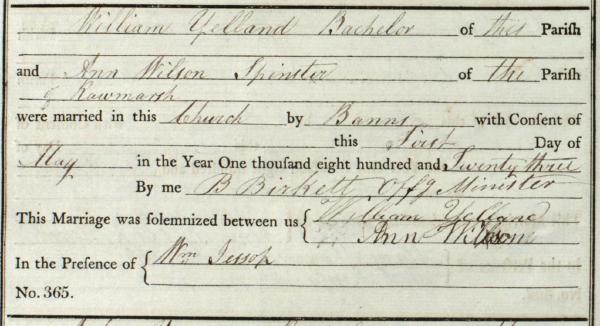 William Yelland Bachelor of this Pariſh
and Ann Wilson Spinster of the Pariſh
of Rawmarsh
were married in this Church by Banns with Consent of
this First Day of
May in the Year One thouſand eight hundred and Twenty three
By me B Birkett Offg Minister
This Marriage was solemnized between us { William Yelland
Ann Wilson
In the Presence of { Wm Jessop
No. 365.